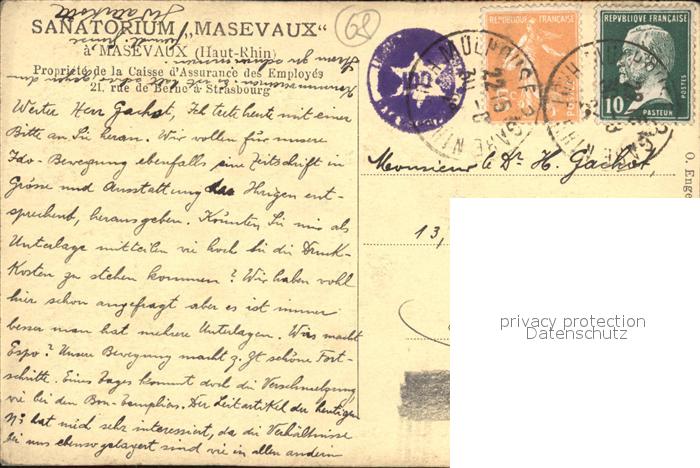 SANATORIUM „MASEVAUX"
à MASEVAUX (Haut-Rhin)
Propriété de la Caisse d'Assurance des Employés
21, rue de Berne à Strasbourg
Werter Herr Gachot, Ich trete heute mit einer
Bitte an Sie heran. Wir vollen für unsere
Ido-Bewegung ebenfalls eine Zeitschrift in
Grösse und Ausstattung der Ihrigen ent-
sprechend, herausgeben. Könnten Sie mir als
Unterlage mitteilen vie hoch bei die Druck-
Kosten zu stehen kommen? Wir haben vohl
hier schon angefragt aber es ist immer
besser man hat mehrere Unterlagen. Was macht
Espo? Unsere Bewegung macht z. Zt schöne Fort-
schritte. Eines Tages kommt doch die Verschmelzung
vie bei den Bon-Templios. Der Leitartikel der heutigen
No hat mich sehr interessiert, da die Verhältnisse
bei uns ebenso gelagert sind vie in allen andern
68
IDO
MULHOUSE GARE
22 15
REPUBLIQUE FRANÇAISE
POSTES
REPUBLIQUE FRANÇAISE
10 c
PASTEUR
POSTES
Monsieur le Dr H. Gachot,
13,
O. Enge
privacy protection
Datenschutz